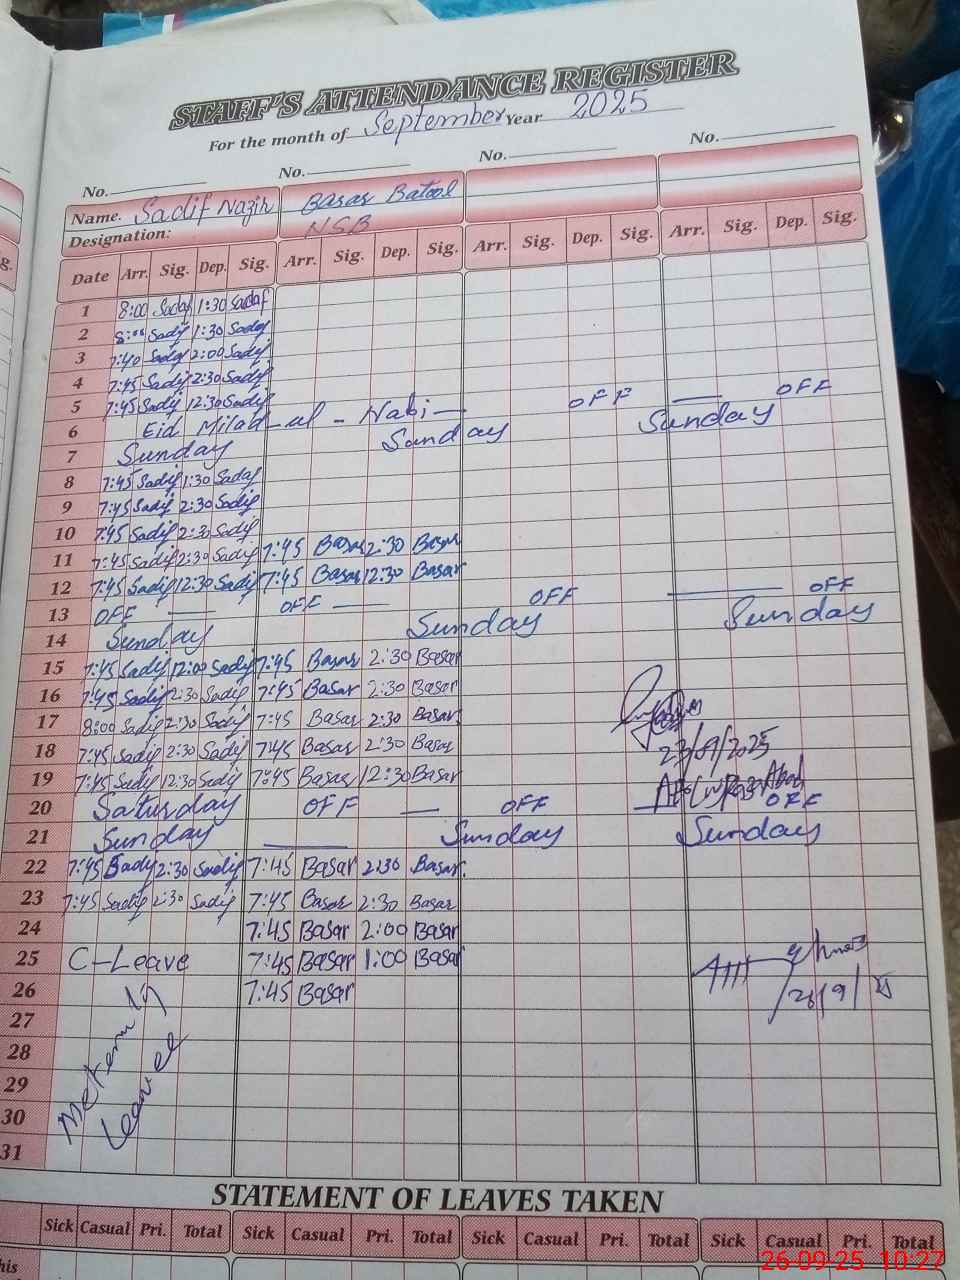 STAFF'S ATTENDANCE REGISTER
For the month of September Year 2025
No. No. No. No.
Name. Sadif Nazir Basar Batool
Designation: NSB
g.
Date Arr. Sig. Dep. Sig. Arr. Sig. Dep. Sig. Arr. Sig. Dep. Sig. Arr. Sig. Dep. Sig.
1 8:00 Sadaf 1:30 Sadaf
2 8:00 Sadif 1:30 Sadaf
3 7:40 Sadaf 2:00 Sadif
4 7:45 Sadif 2:30 Sadif
5 7:45 Sadif 12:30 Sadif
6 Eid Milad-ul-Nabi — OFF — OFF
7 Sunday Sunday Sunday
8 7:45 Sadif 1:30 Sadaf
9 7:45 Sadif 2:30 Sadif
10 7:45 Sadif 2:30 Sadif
11 7:45 Sadif 2:30 Sadif 7:45 Basar 2:30 Basar
12 7:45 Sadif 12:30 Sadif 7:45 Basar 12:30 Basar
13 OFF — OFF — OFF — OFF
14 Sunday Sunday Sunday
15 7:45 Sadif 12:00 Sadif 7:45 Basar 2:30 Basar
16 7:45 Sadif 2:30 Sadif 7:45 Basar 2:30 Basar
17 8:00 Sadif 2:30 Sadif 7:45 Basar 2:30 Basar
18 7:45 Sadif 2:30 Sadif 7:45 Basar 2:30 Basar 23/09/2025
19 7:45 Sadif 12:30 Sadif 7:45 Basar 12:30 Basar
20 Saturday OFF — OFF — OFF
21 Sunday — Sunday Sunday
22 7:45 Sadif 2:30 Sadif 7:45 Basar 2:30 Basar.
23 7:45 Sadif 2:30 Sadif 7:45 Basar 2:30 Basar
24 7:45 Basar 2:00 Basar
25 C-Leave 7:45 Basar 1:00 Basar
26 7:45 Basar 26/9/25
27
28
29
30
31
Meternity Leave
STATEMENT OF LEAVES TAKEN
Sick Casual Pri. Total Sick Casual Pri. Total Sick Casual Pri. Total Sick Casual Pri. Total
his
26-09-25 10:27